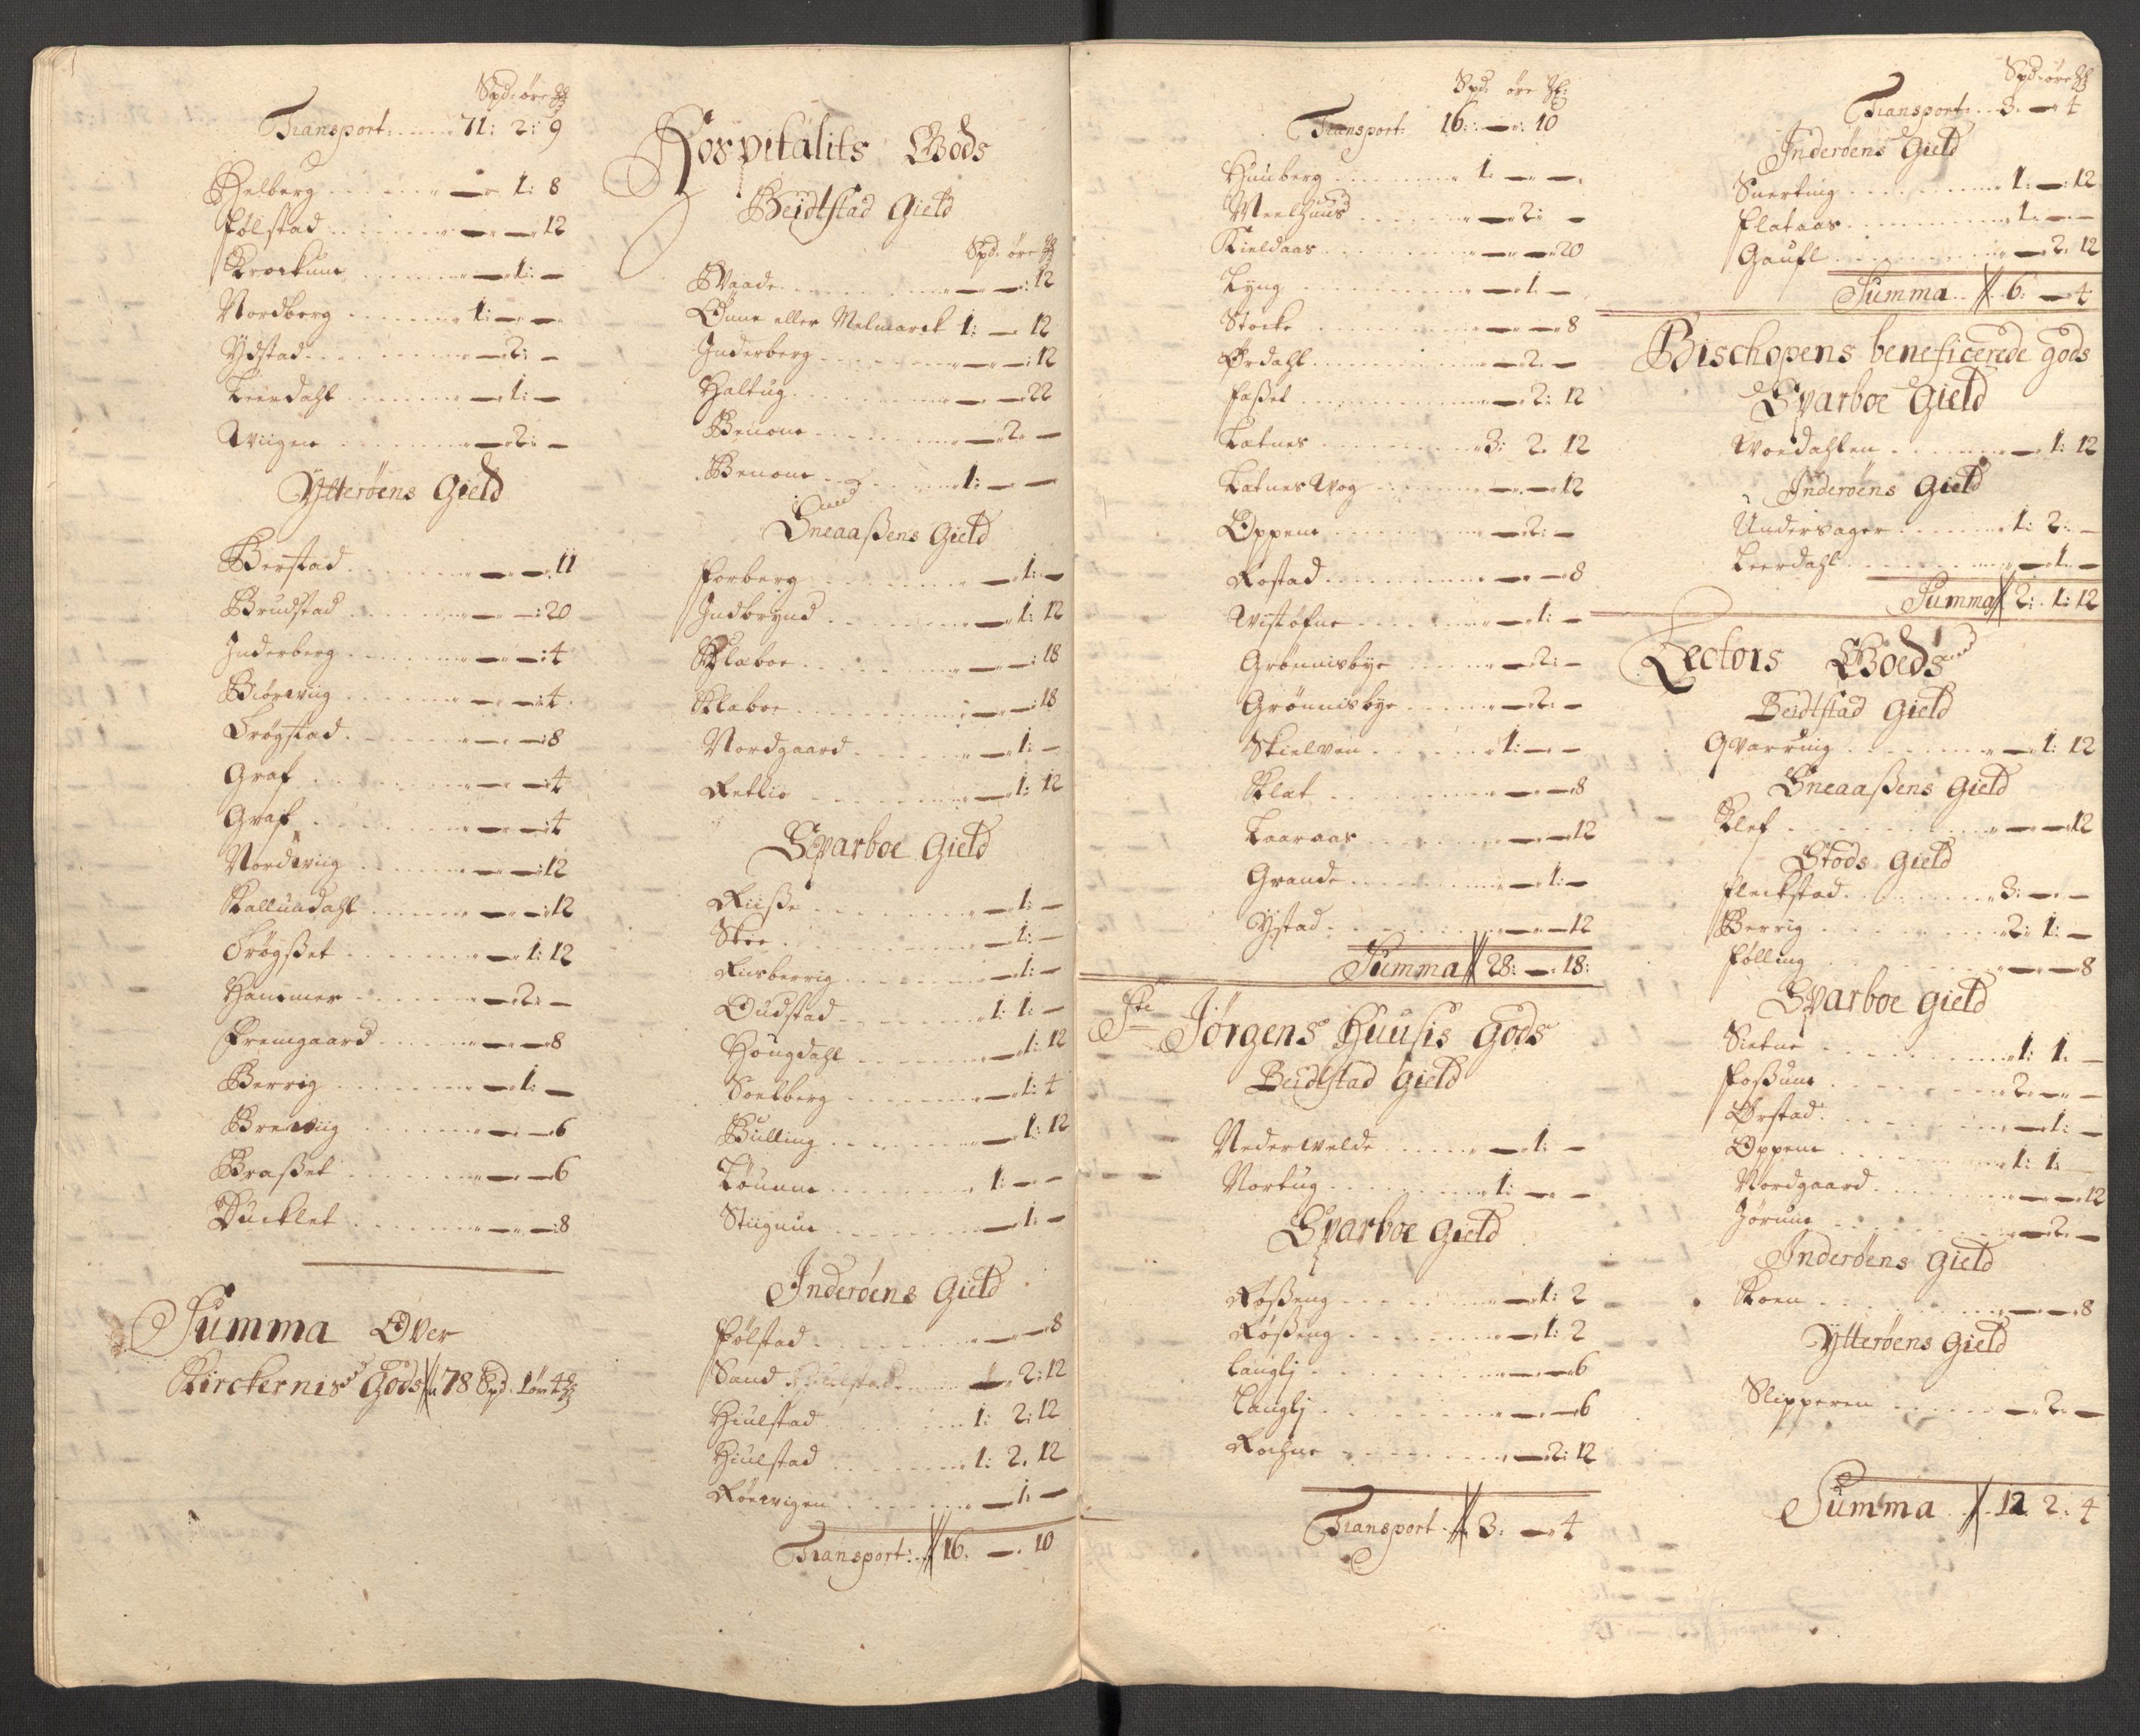 Spd: øre ℔
Transport: 71: 2: 9
Helberg — 1: 8
Følstad — — 12
Krockum — 1: —
Nordberg 1: — —
Ydstad — 2: —
Leerdahl — 1: —
Wiigen — 2: —
Ytterøens Gield
Berstad — — 11
Brudstad — — 20
Inderberg — — 4
Biørwiig — — 4
Trøgstad — — 8
Graf — — 4
Graf — — 4
Nordwiig — — 12
Kallundahl — — 12
Trøgßet — 1: 12
Hammer — 2: —
Fremgaard — — 8
Berrig — 1: —
Brewiig — — 6
Braßet — — 6
Ducklet — — 8
Summa Over
Kirckernis Gods 78 Spd: 1 ør 4 ℔
Hospitalits Gods
Beidtstad Gield
Spd: øre ℔
Waade — — 12
Önne eller Melmarck 1: — 12
Inderberg — — 12
Haltug — — 22
Benom — 2: —
Benom 1: — —
Sneaaßens Gield
Forberg — 1: —
Indbrynd — 1: 12
Klæboe — — 18
Klæboe — — 18
Nordgaard — 1: —
Retlio — 1: 12
Sparboe Gield
Riiße — 1: —
Skee — 1: —
Riisberrig — 1: —
Oudstad 1: 1: —
Hougdahl — 1: 12
Soelberg — 1: 4
Bulling — 1: 12
Tøumm 1: — —
Stiigum — 1: —
Inderøens Gield
Følstad — — 8
Sand — 2: 12
Hiulstad 1: 2: 12
Hiulstad 1: 2: 12
Rørwigen — 1: —
Transport: 16: — 10
Spd: øre ℔:
Transport: 16: — 10
Hunberg 1: — —
Meelhuus — 2: —
Kieldaas — — 20
Lyng — 1: —
Stocke — — 8
Ørdahl — 2: —
Foßet — 2: 12
Letnes 3: 2: 12
Letnes Wog — — 12
Oppem — 2: —
Rostad — — 8
Wistøfne — 1: —
Grønnisbye — 2: —
Grønnisbye — 2: —
Skielvan 1: — —
Klet — — 8
Laaraas — — 12
Grande — 1: —
Ystad — — 12
Summa 28: — 18:
Ste Jørgens Huusis Gods
Beidtstad Gield
Nederwelde — 1: —
Nortug 1: — —
Sparboe Gield
Røßeng — 1: 2
Røßeng — 1: 2
Langlj — — 6
Langlj — — 6
Rochne — 2: 12
Transport 3: — 4
Spd: øre ℔
Transport: 3: — 4
Inderøens Gield
Snerting 1: — 12
Flataas 1: — —
Gaufl — 2: 12
Summa 6: — 4
Bischopens beneficerede gods
Sparboe Gield
Woedahlen — 1: 12
Inderøens Gield
Undersager 1: 2: —
Leerdahl — 1: —
Summa 2: 1: 12
Lectors Goeds
Beidtstad Gield
Qvarruig — 1: 12
Sneaaßens Gield
Klef — — 12
Stods Gield
Fleckstad 3: — —
Berrig 2: 1: —
Følling — — 8
Sparboe Gield
Sietne 1: 1: —
Foßum 2: — —
Ørstad — 1: —
Oppem 1: 1: —
Nordgaard — — 12
Jørum — 2: —
Inderøens Gield
Koen — — 8
Ytterøens Gield
Slipperen — 2: —
Summa 12 2: 4